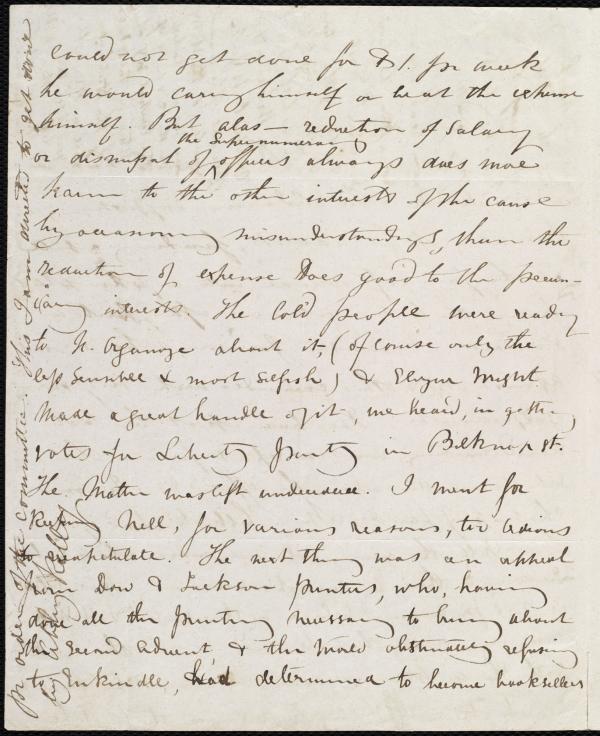 could not get done for $1. pr week
he would carry himself or bear the expense
himself. But alas — reduction of salary
or dismissal of the supernumerary officers always does more
harm to the other interests of the cause
by occasioning misunderstandings, than the
reduction of expense does good to the pecun-
iary interests. The Cold people were ready
to N. Organize about it, (of course only the
less sensible & most selfish) & Elizur Wright
made a great handle of it, we heard, in getting
votes for Liberty party in Belknap st.
The matter was left undecided. I went for
keeping Nell, for various reasons, too tedious
to recapitulate. The next thing was an appeal
from Dow & Jackson printers, who, having
done all the printing necessary to bring about
the second advent & the world obstinately refusing
to enkindle, had determined to become booksellers
pr order of the committee. This I am directed to get done
by Abby Kelly